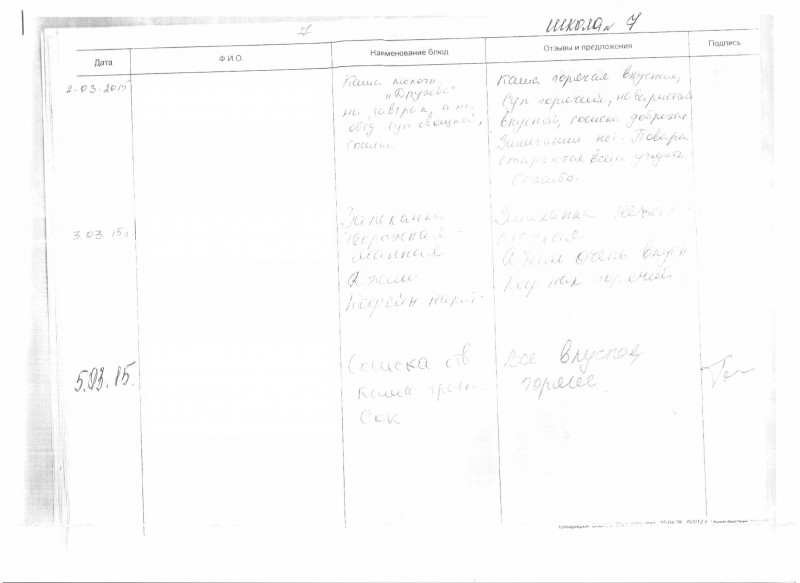 7
школа № 7
Дата
Ф.И.О.
Наименование блюд
Отзывы и предложения
Подпись
2-03-2015
Каша молочн.
"Дружба"
на завтрак, а на
обед суп овощной,
Каша горячая вкусная,
Суп горячий, наваристый
вкусной, сосиски
Замечаний нет. Повара
стараются всем угодить
Спасибо.
3.03.15г
Запеканка
творожная -
манная
Джем
Запеканка
Джем очень
горячий
5.03.15.
Сосиска
каша
Сок
Все вкусное,
горячее